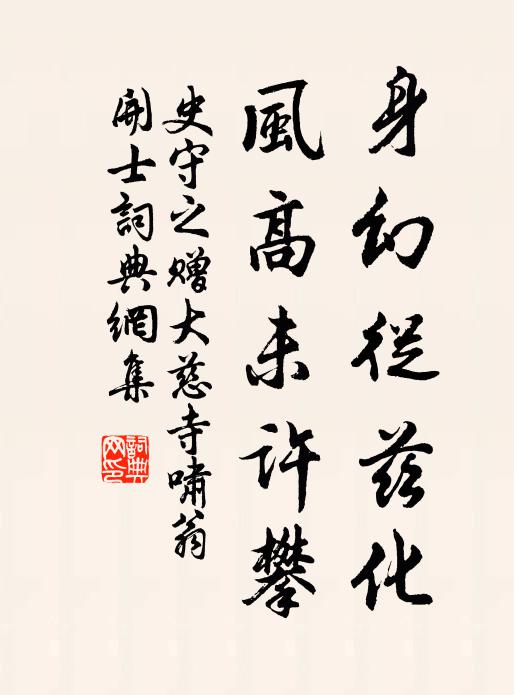 身幻從茲化
風高未許攀
史守之贈大慈寺嘯翁
開士詞典網集
詞典
网印